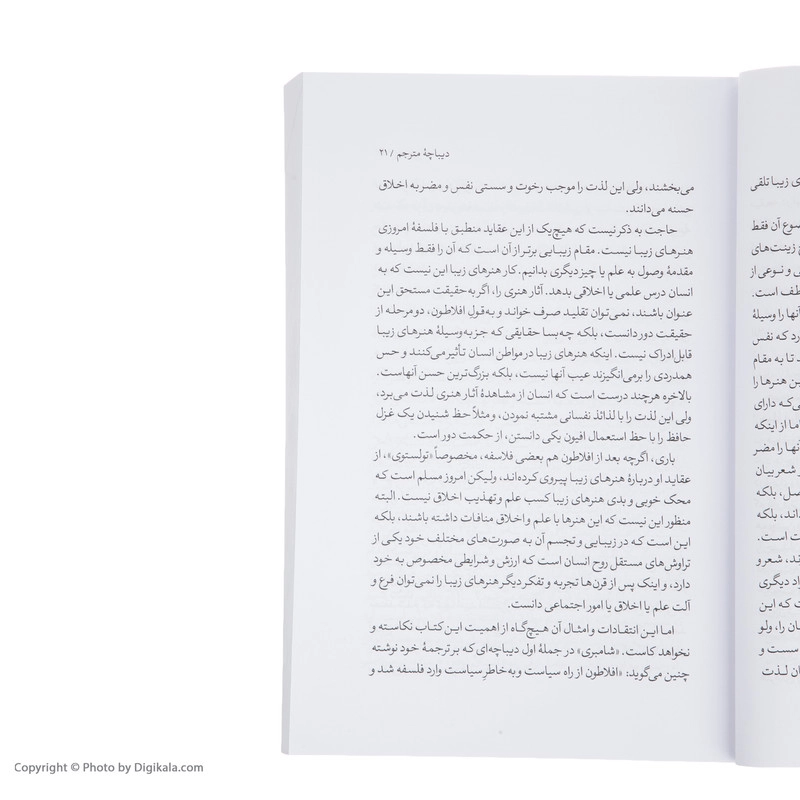 دیباچهٔ مترجم / ۲۱
می‌بخشند، ولی این لذت را موجب رخوت و سستی نفس و مضر به اخلاق
حسنه می‌دانند.
حاجت به ذکر نیست که هیچ‌یک از این عقاید منطبق با فلسفهٔ امروزی
هنرهای زیبا نیست. مقام زیبایی برتر از آن است که آن را فقط وسیله و
مقدمهٔ وصول به علم یا چیز دیگری بدانیم. کار هنرهای زیبا این نیست که به
انسان درس علمی یا اخلاقی بدهد. آثار هنری را، اگر به حقیقت مستحق این
عنوان باشند، نمی‌توان تقلید صرف خواند و به‌قول افلاطون، دو مرحله از
حقیقت دور دانست، بلکه چه‌بسا حقایقی که جز به‌وسیلهٔ هنرهای زیبا
قابل ادراک نیست. اینکه هنرهای زیبا در مواطن انسان تأثیر می‌کنند و حس
همدردی را برمی‌انگیزند عیب آنها نیست، بلکه بزرگ‌ترین حسن آنهاست.
بالاخره هرچند درست است که انسان از مشاهدهٔ آثار هنری لذت می‌برد،
ولی این لذت را با لذائذ نفسانی مشتبه نمودن، و مثلاً حظ شنیدن یک غزل
حافظ را با حظ استعمال افیون یکی دانستن، از حکمت دور است.
باری، اگرچه بعد از افلاطون هم بعضی فلاسفه، مخصوصاً «تولستوی»، از
عقاید او دربارهٔ هنرهای زیبا پیروی کرده‌اند، ولیکن امروز مسلم است که
محک خوبی و بدی هنرهای زیبا کسب علم و تهذیب اخلاق نیست. البته
منظور این نیست که این هنرها با علم و اخلاق منافات داشته باشند، بلکه
این است که در زیبایی و تجسم آن به صورت‌های مختلف خود یکی از
تراوش‌های مستقل روح انسان است که ارزش و شرایطی مخصوص به خود
دارد، و اینک پس از قرن‌ها تجربه و تفکر دیگر هنرهای زیبا را نمی‌توان فرع و
آلت علم یا اخلاق یا امور اجتماعی دانست.
اما این انتقادات و امثال آن هیچ‌گاه از اهمیت این کتاب نکاسته و
نخواهد کاست. «شامبری» در جملهٔ اول دیباچه‌ای که بر ترجمهٔ خود نوشته
چنین می‌گوید: «افلاطون از راه سیاست و به‌خاطرِ سیاست وارد فلسفه شد و
ی زیبا تلقی
ضوع آن فقط
زینت‌های
ی و نوعی از
طف است.
آنها را وسیلهٔ
رد که نفس
د تا به مقام
ن هنرها را
ی‌که دارای
ما از اینکه
آنها را مضر
شعر بیان
صل، بلکه
داند، بلکه
ت است.
ند، شعر و
راد دیگری
ت که این
ان را، ولو
سست و
ان لذت
Copyright © Photo by Digikala.com